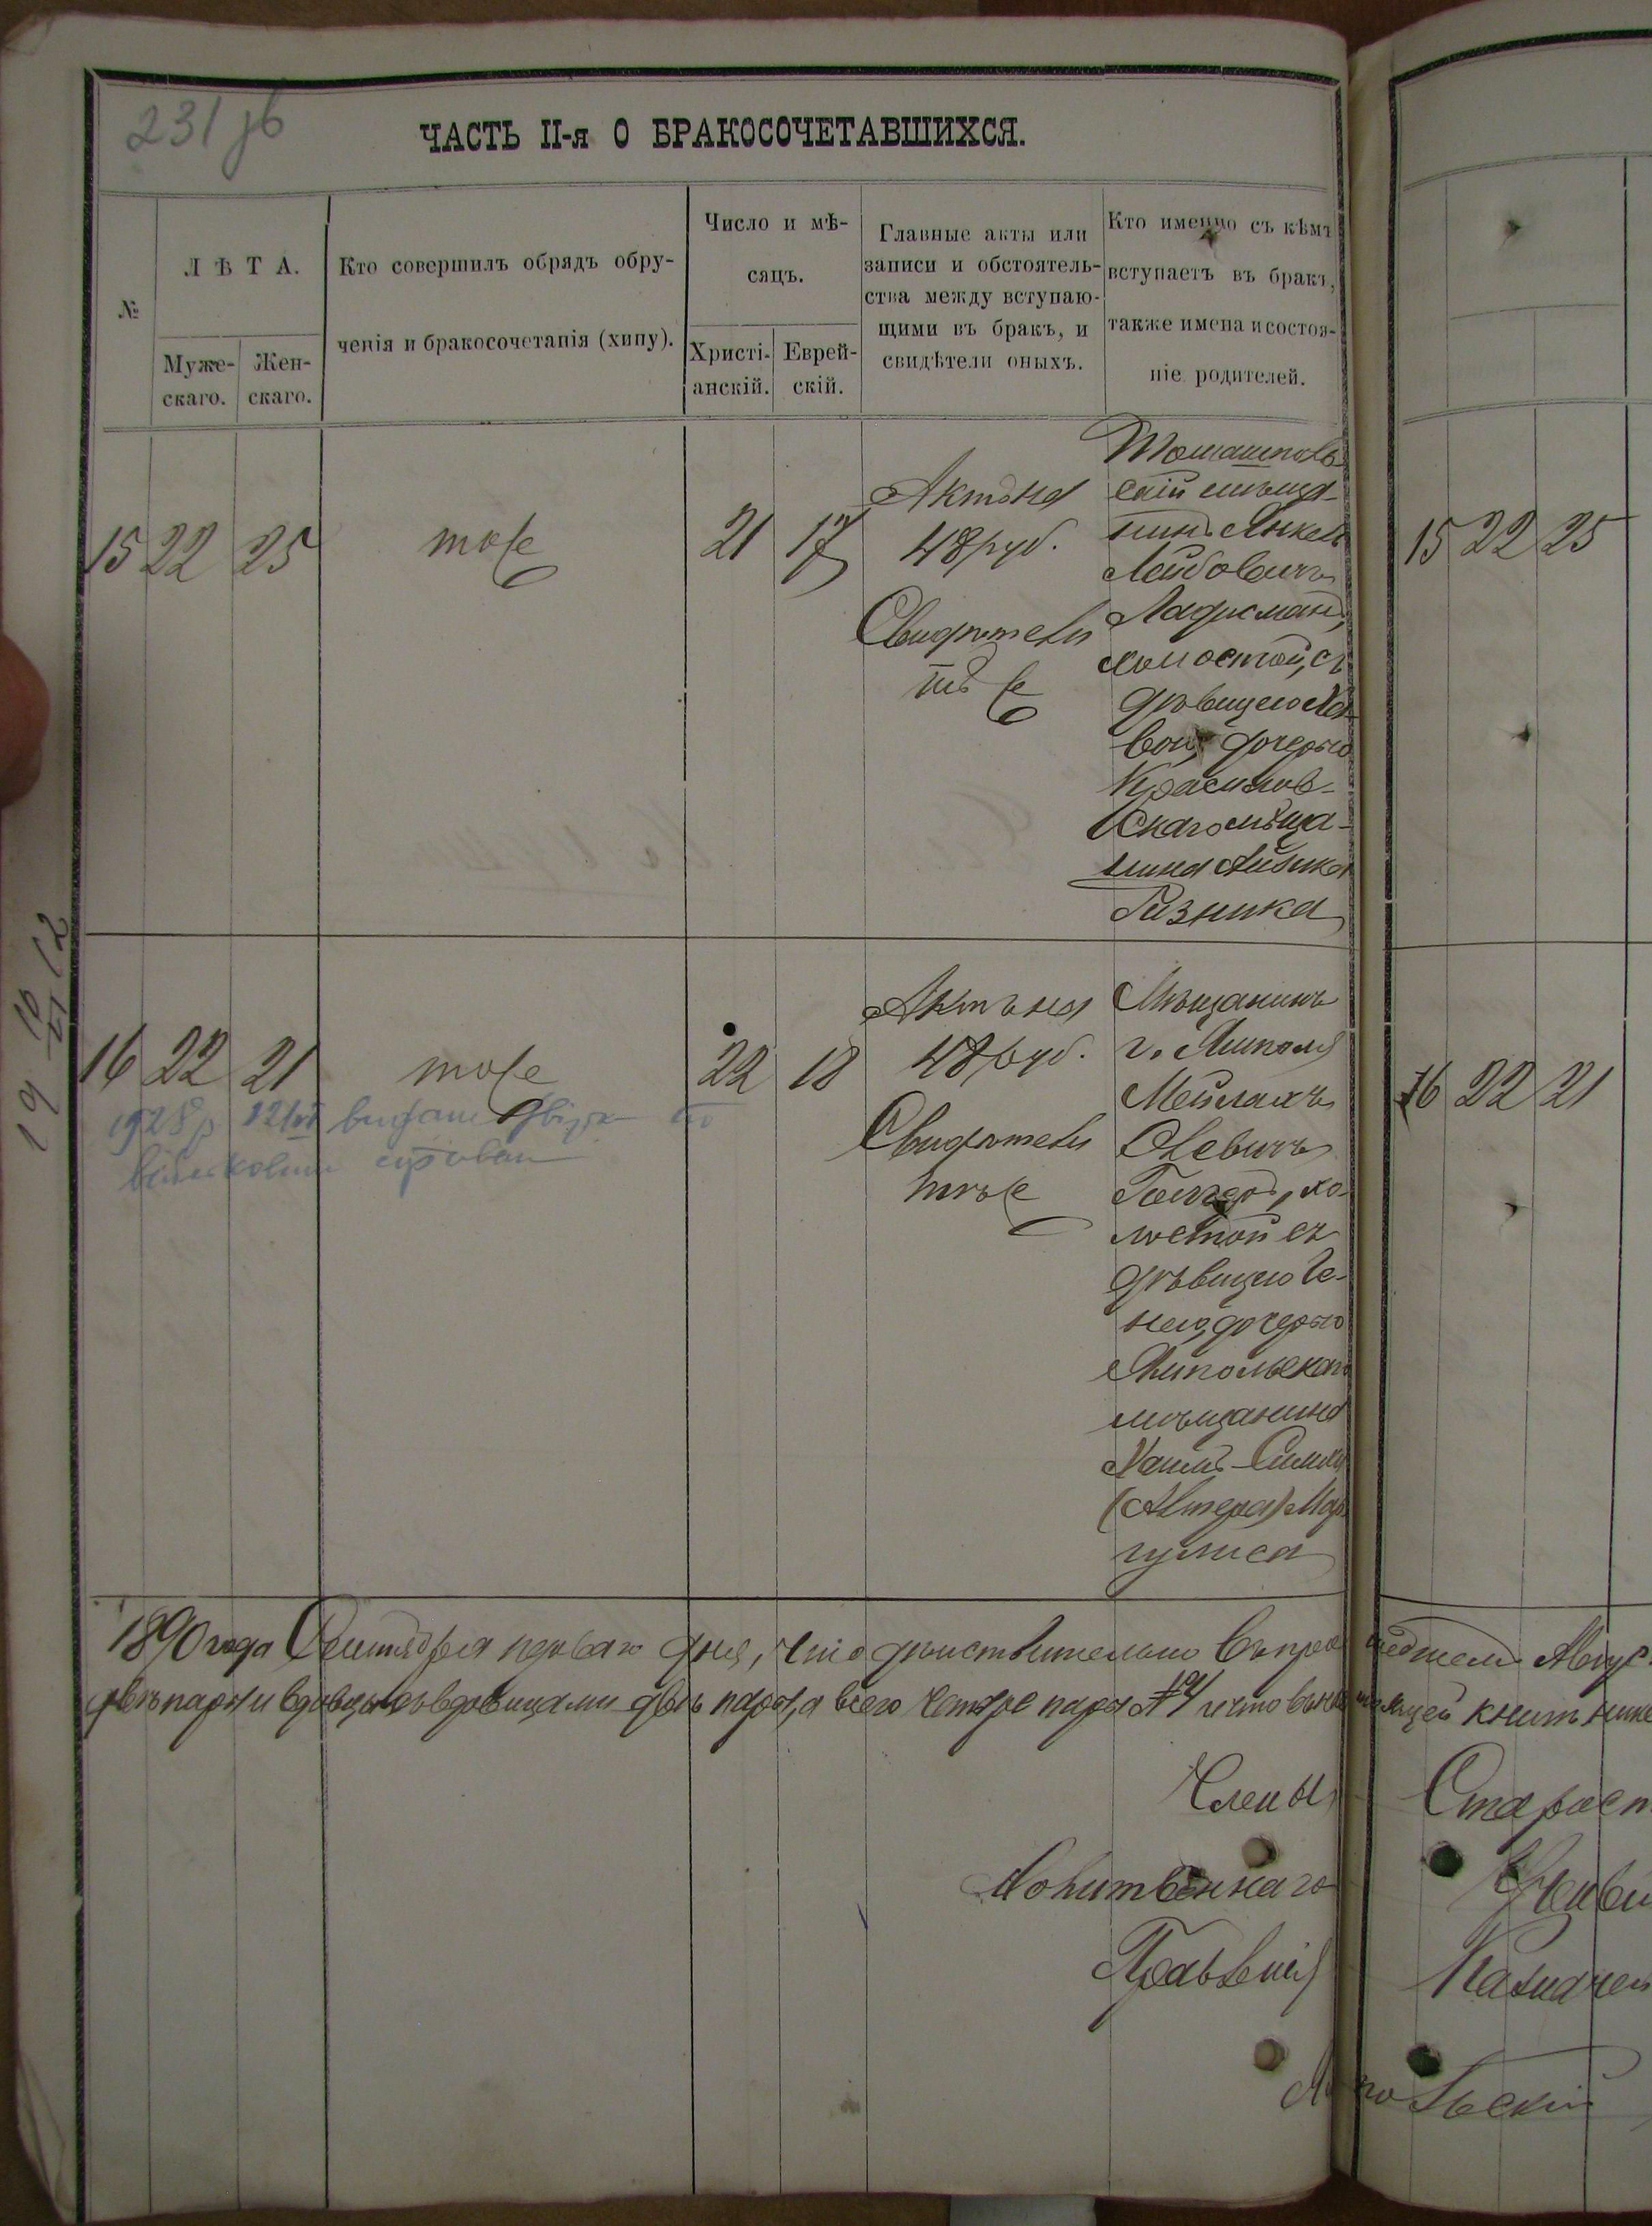 231 зв
ЧАСТЬ II-я О БРАКОСОЧЕТАВШИХСЯ.
№
ЛѢТА.
Муже-
скаго.
Жен-
скаго.
Кто совершилъ обрядъ обру-
ченія и бракосочетанія (хипу).
Число и мѣ-
сяцъ.
Христі-
анскій.
Еврей-
скій.
Главные акты или
записи и обстоятель-
ства между вступаю-
щими въ бракъ, и
свидѣтели оныхъ.
Кто именно съ кѣмъ
вступаетъ въ бракъ,
также имена и состоя-
ніе родителей.
15 22 25 тоже 21 17
Актъ на
48 руб.
Свидѣтели
тѣ же
Томашполь-
скій мѣща-
нинъ Янкель
Лейбовичъ
холостой, съ
дѣвицею Ха-
вою, дочерью
Краснов-
скаго мѣща-
нина Айзика
Рѣзника
15 22 25
16 22 21 тоже 22 18
Актъ на
48 руб.
Свидѣтели
тѣже
Мѣщанинъ
г. Ямполя
Мейлахъ
хо-
лостой съ
дѣвицею Ге-
нею, дочерью
Ямпольскаго
мѣщанина
Хаимъ-Симха
(Алтера) Мар-
гулиса
16 22 21
1928 р 12/VI видане
19 12
1890 года Сентября перваго дня, что дѣйствительно въ прошедшемъ Авгус
двѣ пары и вдовцы съ вдовицами двѣ пары, а всего четыре пары № 4 и что въ книгѣ
Члены Старост
Молитвеннаго
Правленія Казначей
Ямпольскій